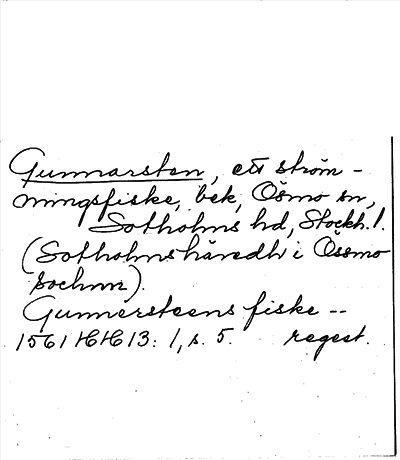 Gunnarsten, ett ström-
mingsfiske, bek, Ösmo sn,
Sotholms hd, Stockh. l.
(Sotholms häredh i Össmo
Sochnn).
Gunnersteens fiske --
1561 HH 13: 1, s. 5. regest.